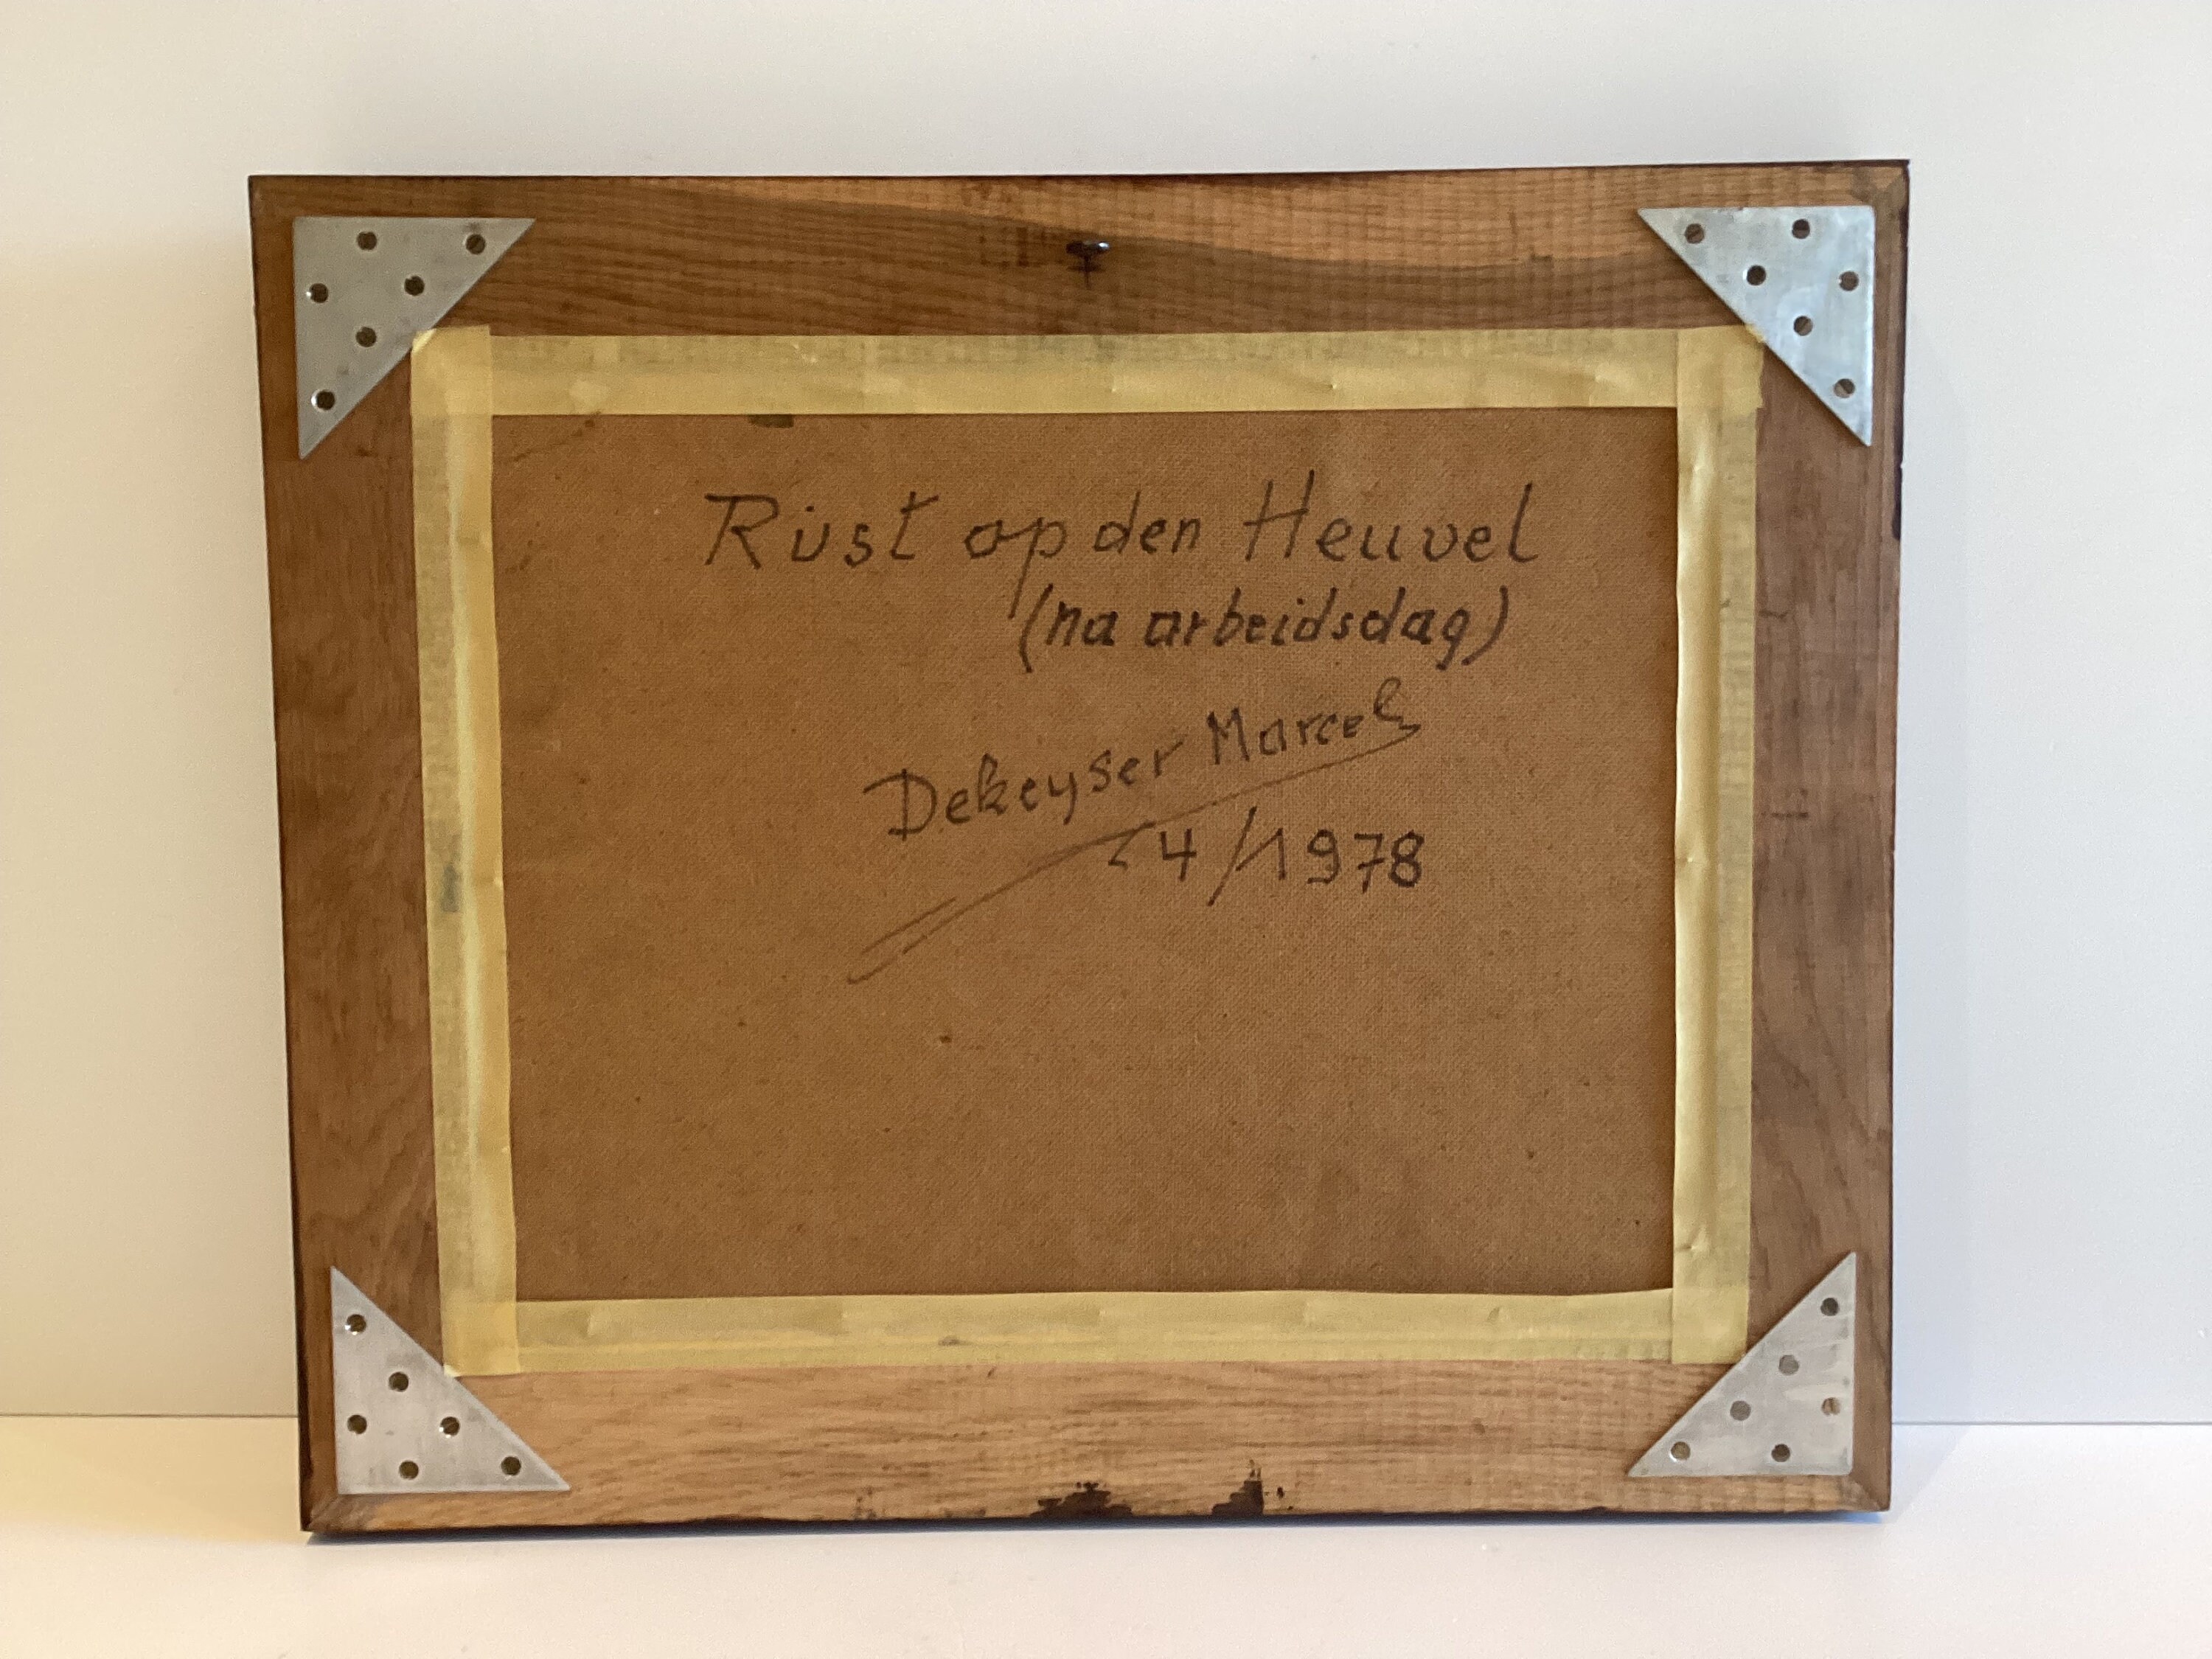 Rust op den Heuvel
(na arbeidsdag)
Dekeyser Marcel
4/1978